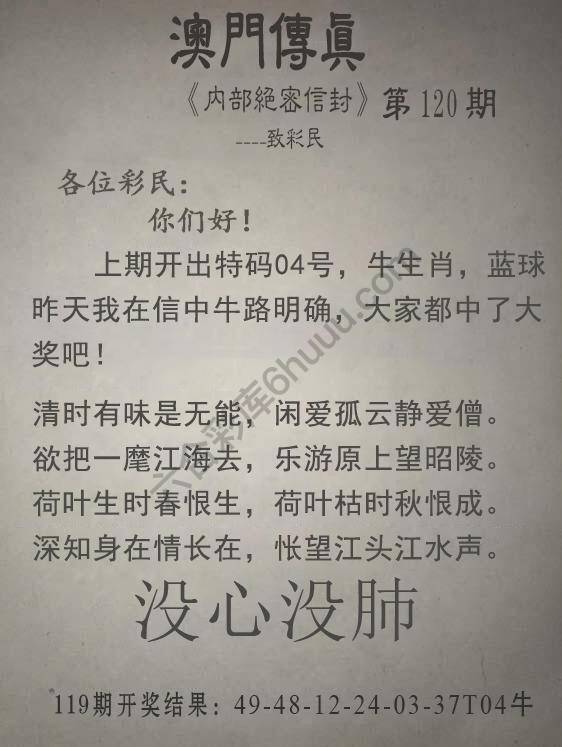 澳門傳眞
《内部絕密信封》第120期
----致彩民
各位彩民：
你们好！
上期开出特码04号，牛生肖，蓝球
昨天我在信中牛路明确，大家都中了大
奖吧！
清时有味是无能，闲爱孤云静爱僧。
欲把一麾江海去，乐游原上望昭陵。
荷叶生时春恨生，荷叶枯时秋恨成。
深知身在情长在，怅望江头江水声。
没心没肺
119期开奖结果：49-48-12-24-03-37T04牛
六合彩库6huuu.com